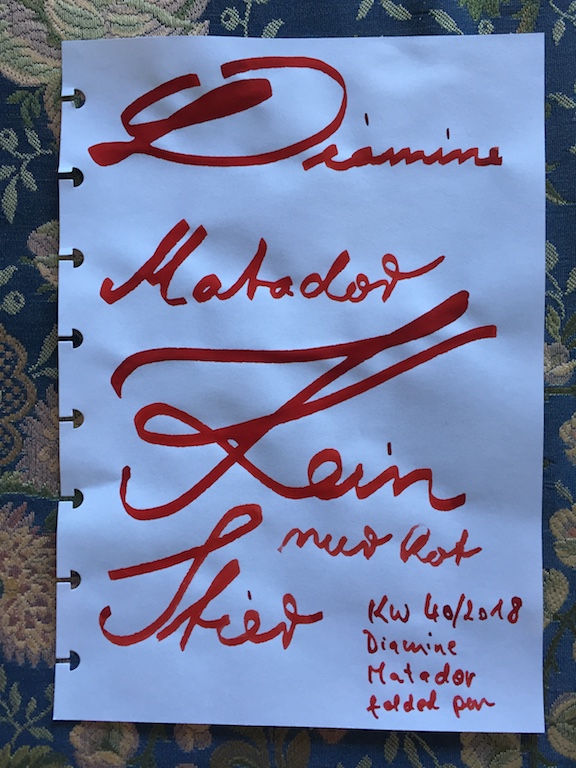 Diamine
Matador
Kein
nur Rot
Stier
KW 40/2018
Diamine
Matador
folded pen